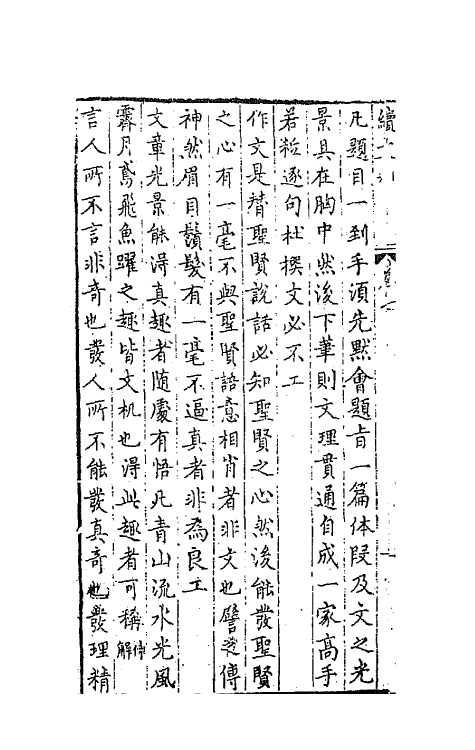 續
凡題目一到手須先默會題旨一篇体段及文之光
景具在胸中然後下筆則文理貫通自成一家高手
若粘逐句杜撰文必不工
作文是替聖賢說話必知聖賢之心然後能發聖賢
之心有一毫不與聖賢語意相肖者非文也譬之傳
神然眉目鬚髮有一毫不逼真者非為良工
文章光景能得真趣者随處有悟凡青山流水光風
霽月鳶飛魚躍之趣皆文机也得此趣者可稱神解
言人所不言非奇也發人所不能發真奇也發理精